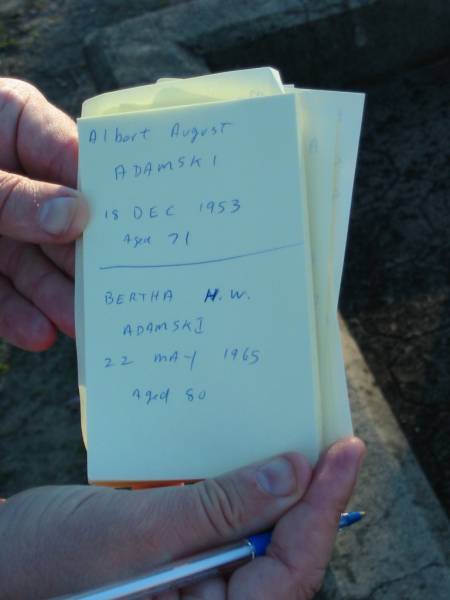 Albert August
ADAMSKI
18 DEC 1953
Aged 71
BERTHA H.W.
ADAMSKI
22 MAY 1965
Aged 80